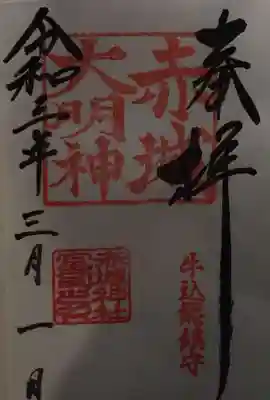 奉拝
赤城
大明神
牛込総鎮守
令和三年三月一日